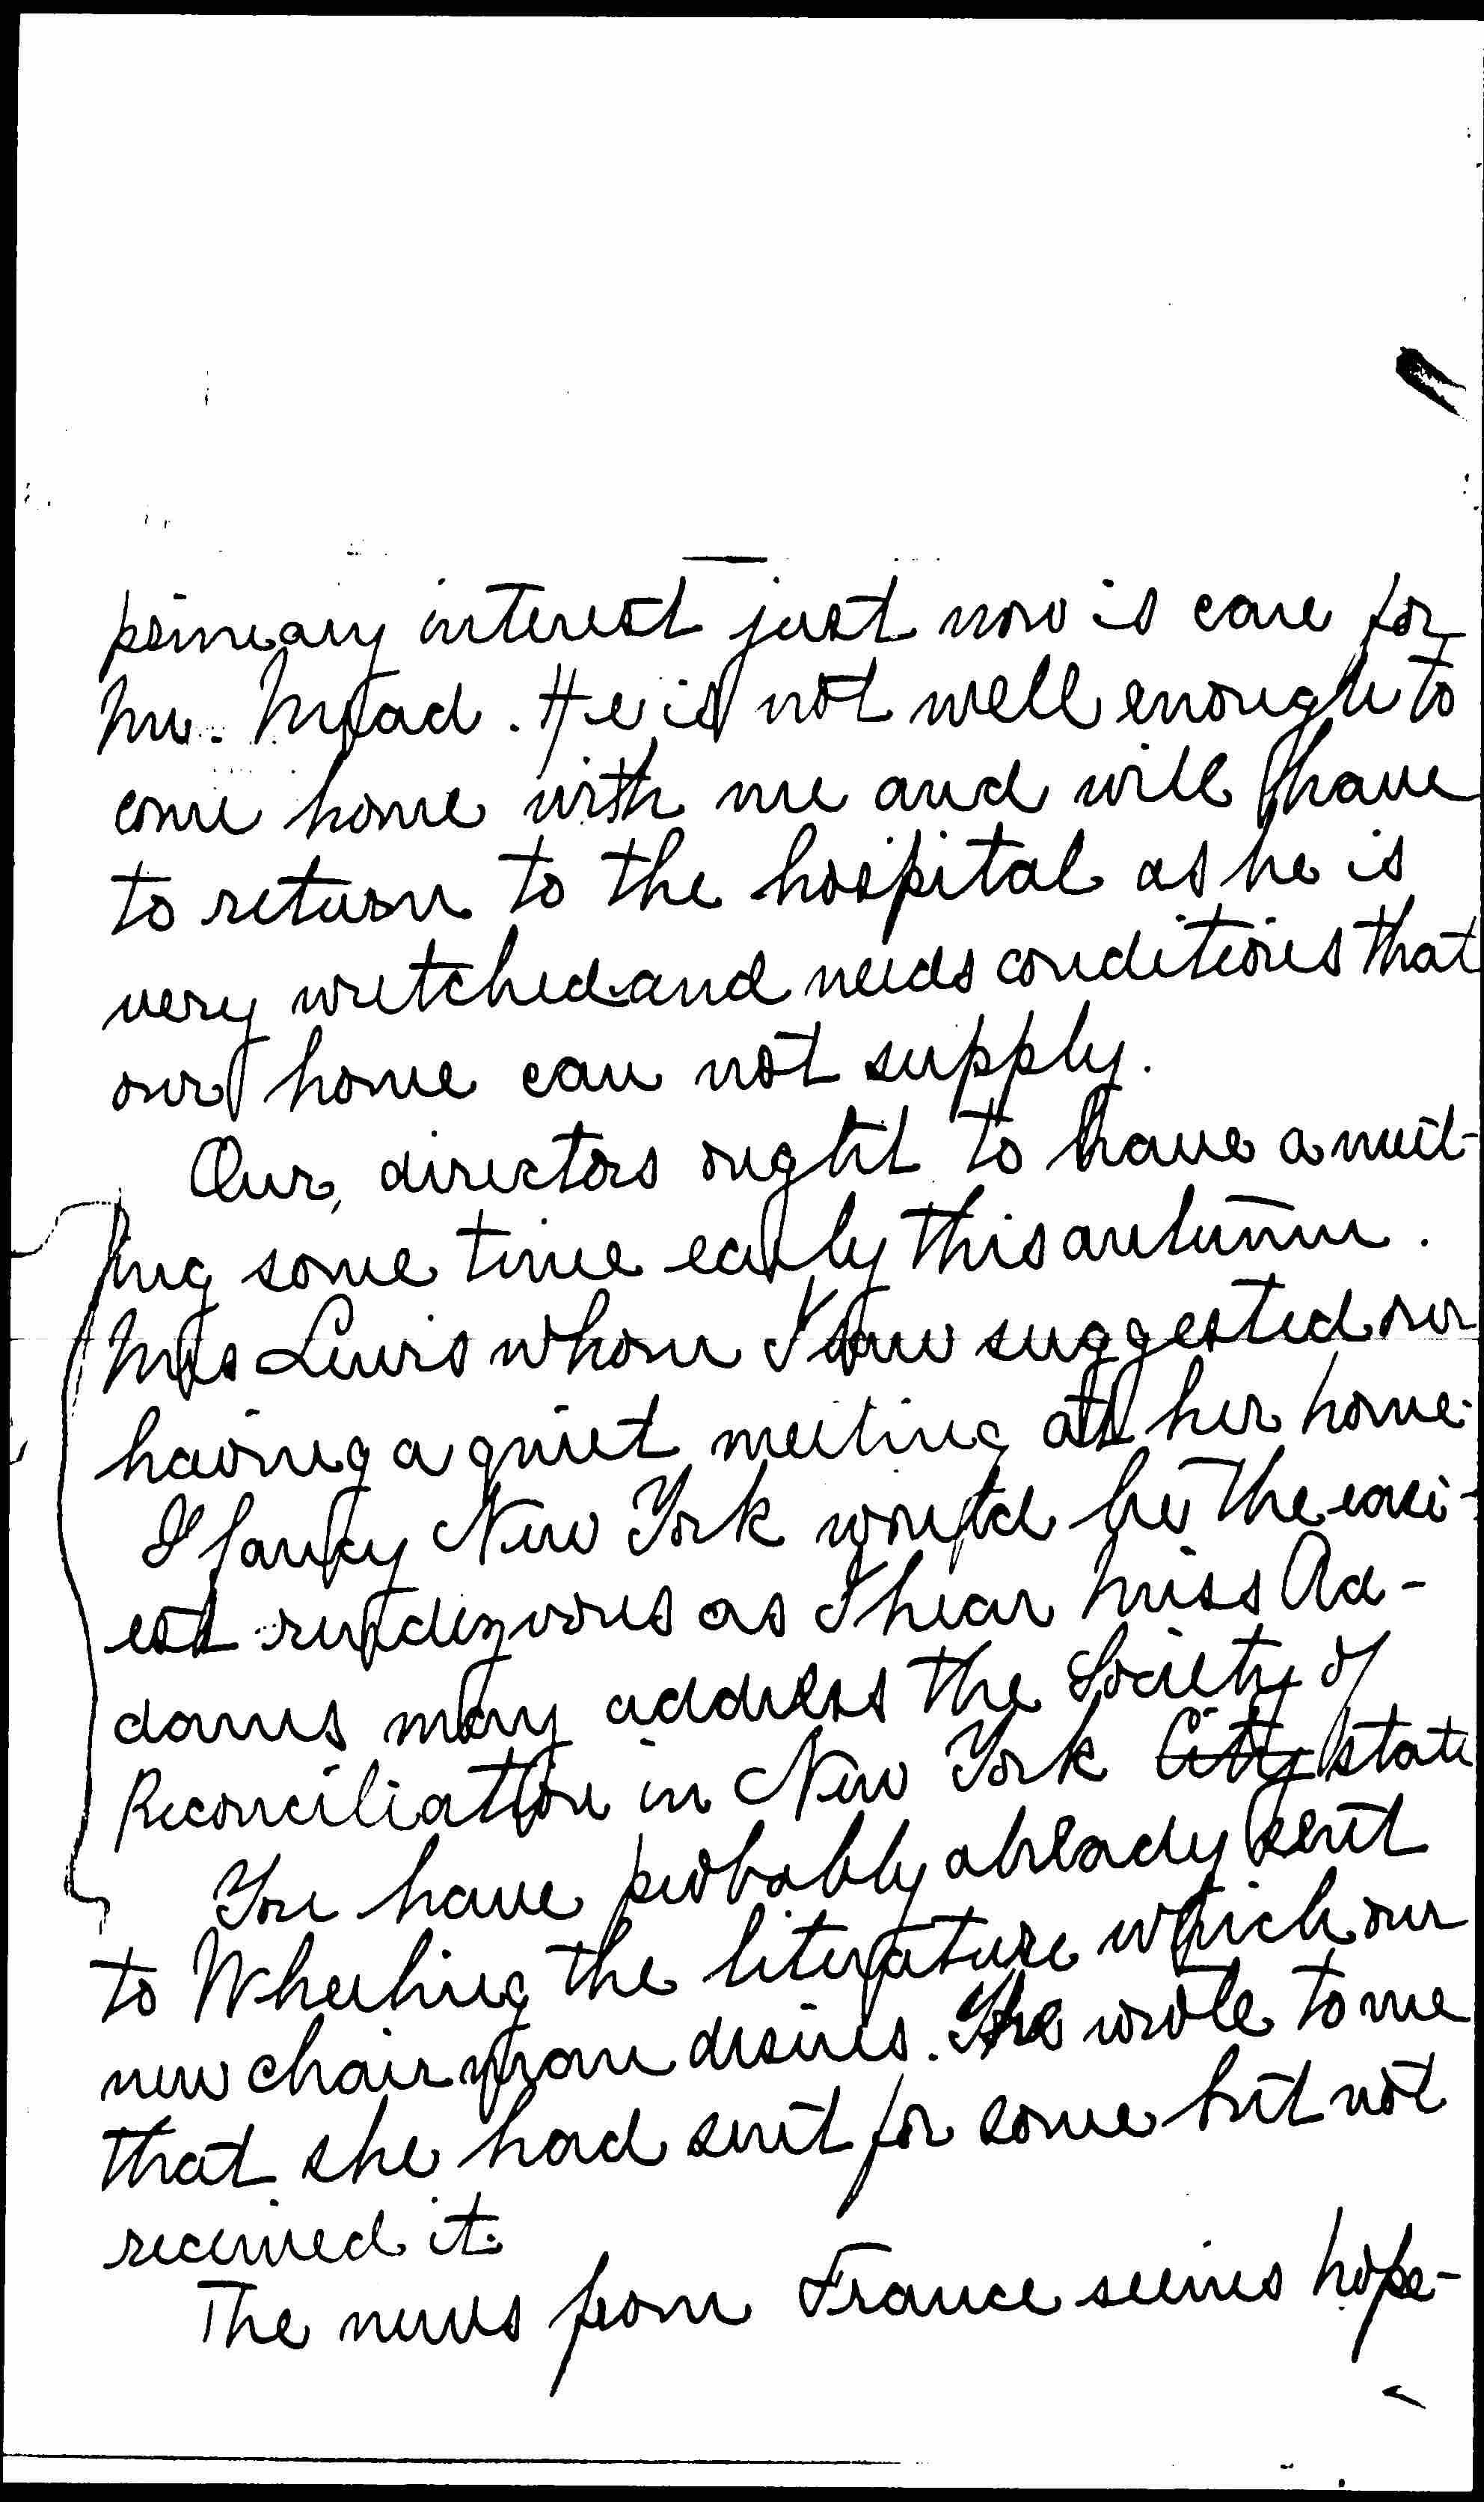 primary interest just now is care for
Mr. Mead. He is not well enough to
come home with me and will have
to return to the hospital as he is
very wretched and needs conditions that
our home can not supply.
Our directors ought to have a meet-
ing some time early this autumn.
Mrs Lewis whom I saw suggested our
having a quiet meeting at her home.
I fancy New York would be the easi-
est rendezvous as I hear Miss Ad-
dams may address the Society of
Reconciliation in New York City state
You have probably already sent
to Wheeling the literature which our
new chairman desires. She wrote to me
that she had sent for some but not
received it.
The news from France seems hope-